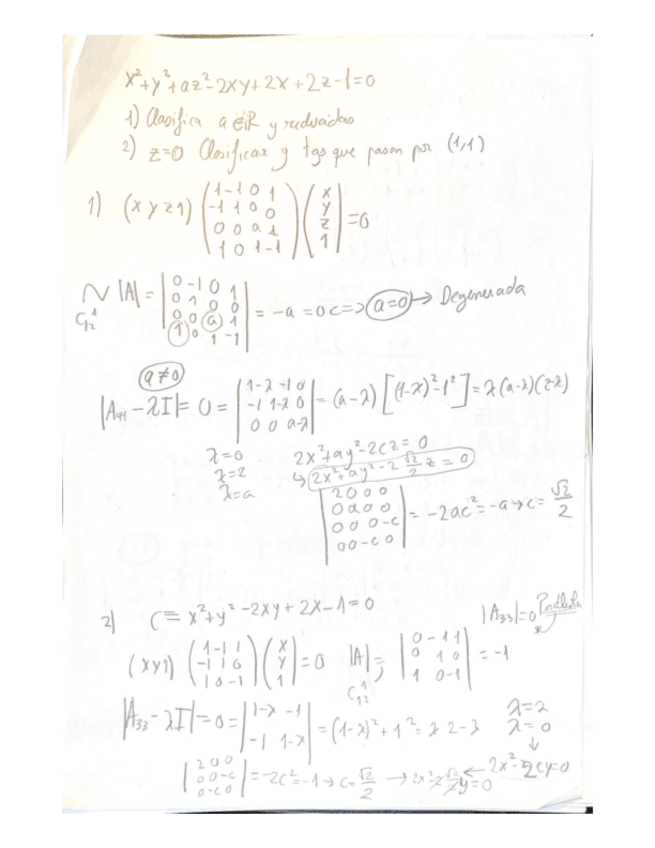 x²+y²+az²-2xy+2x+2z-1=0
1) Clasifica a∈ℝ y reducidas
2) z=0 Clasificar y tgs que pasan por (1,1)
1) (x y z 1) (1 -1 0 1 / -1 1 0 0 / 0 0 a 1 / 1 0 1 -1) (x / y / z / 1) =0
~ C₁₂¹ |A| = |0 -1 0 1 / 0 1 0 0 / 0 0 a 1 / 1 0 1 -1| = -a = 0 <=> a=0 → Degenerada
a≠0
|A₄₄-λI| = 0 = |1-λ -1 0 / -1 1-λ 0 / 0 0 a-λ| = (a-λ)[(1-λ)²-1²] = λ(a-λ)(2-λ)
λ=0
λ=2
λ=a
2x²+ay²-2cz=0
↳ 2x²+ay²-2 √2/2 z=0
|2 0 0 0 / 0 a 0 0 / 0 0 0 -c / 0 0 -c 0| = -2ac² = -a → c = √2/2
2) C≡ x²+y²-2xy+2x-1=0
|A₃₃|=0 Parábola
(x y 1) (1 -1 1 / -1 1 0 / 1 0 -1) (x / y / 1) =0 |A| = C₁₂¹ |0 -1 1 / 0 1 0 / 1 0 -1| = -1
|A₃₃-λI|=0= |1-λ -1 / -1 1-λ| = (1-λ)²+1² = λ 2-λ
λ=2
λ=0
↓
|2 0 0 / 0 0 -c / 0 -c 0| = -2c²=-1 → c= √2/2 → 2x²-2 √2/2 y=0 ← 2x²-2cy=0